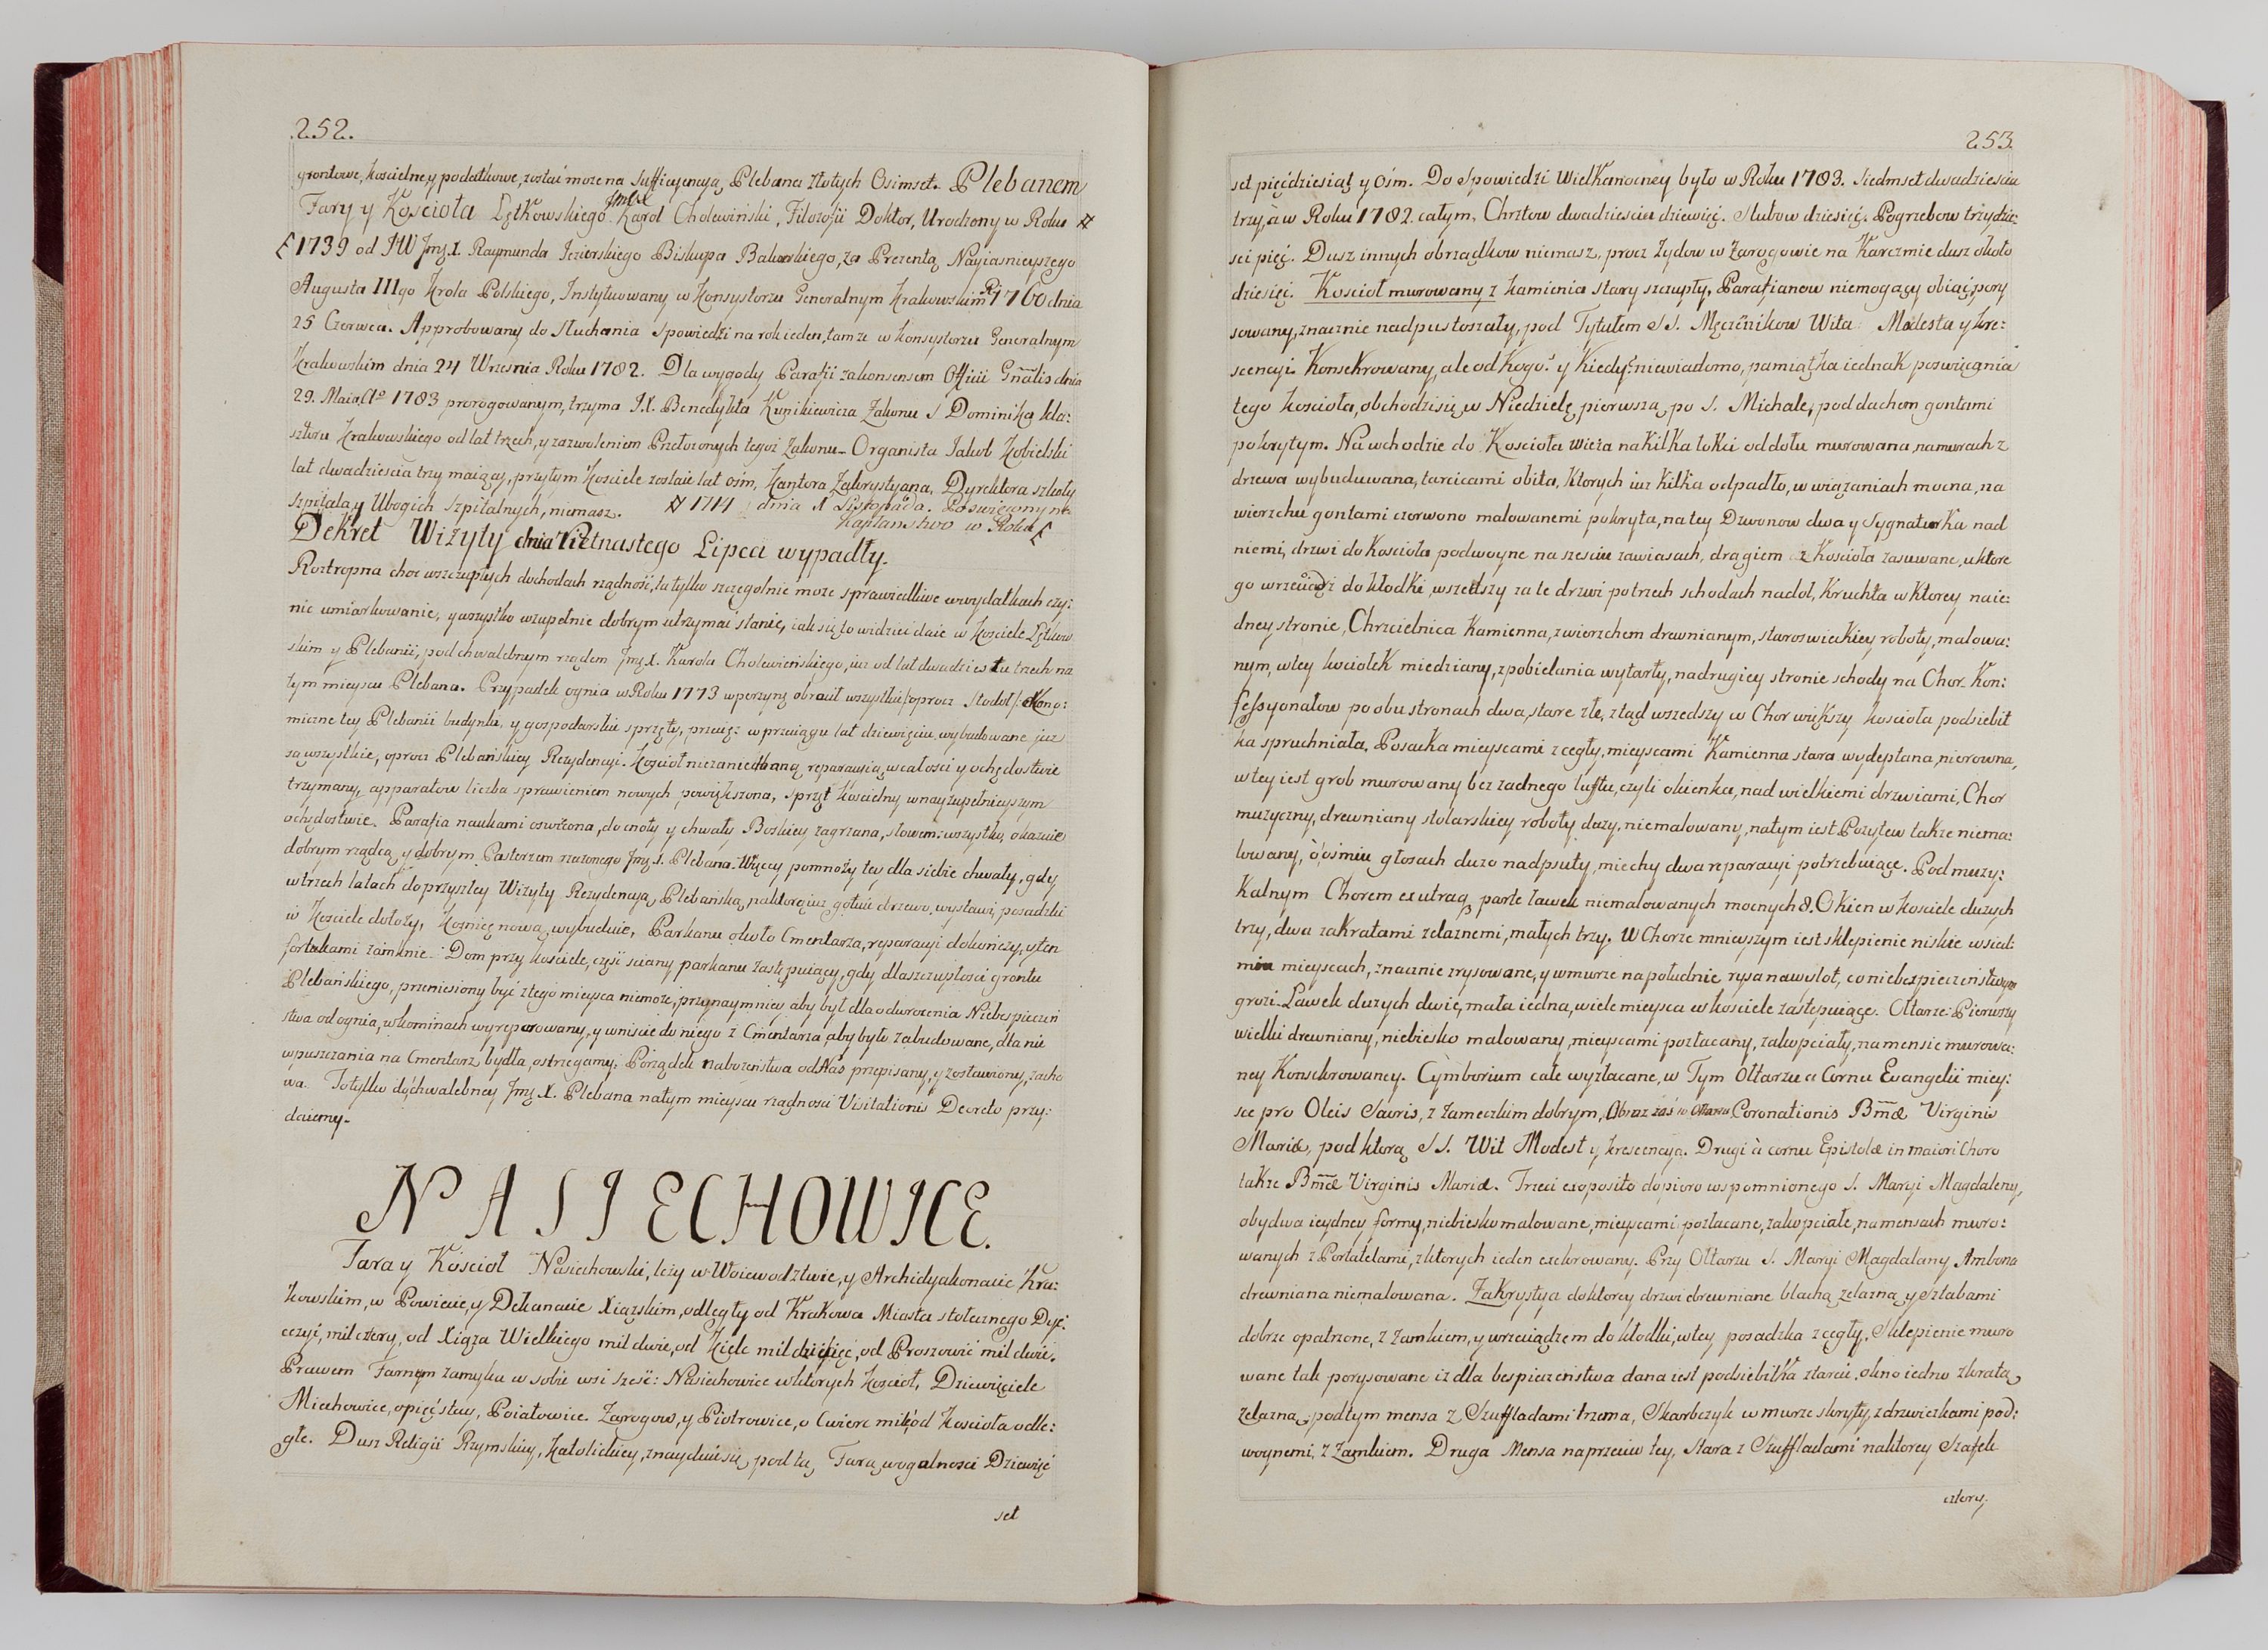 252.
grontowe, koscielne, y podatkowe, zostać może na Sufficyencyą Plebana Złotych Osimset. Plebanem
Fary y Kościoła Łętkowskiego Jmć X Karol Cholewiński, Filozofii Doktor, Urodzony w Roku #
1739 od JW Jmę X. Raymunda Jezierskiego Biskupa Bakowskiego, za Prezentą Nayiasnieyszego
Augusta IIIgo Krola Polskiego, Instytuowany w Konsystorzu Generalnym Krakowskim R 1760 dnia
25 Czerwca. Approbowany do Słuchania Spowiedzi na rok ieden, tamże w Konsystorzu Generalnym
Krakowskim dnia 24 Wrzesnia Roku 1782. Dla wygody Parafii za konsensem Officii Gñalis dnia
29. Maia Aº 1783 prorogowanym, trzyma J.X. Benedykta Kunikiewicza Zakonu S Dominika kla:
sztoru Krakowskiego od lat trzech, y zazwoleniem Przełożonych tegoż Zakonu. Organista Jakob Kobielski
lat dwadzieścia trzy maiący, przytym Kosciele zostaie lat ośm, Kantora, Zakrystyana, Dyrektora szkoły
Szpitala, y Ubogich Szpitalnych, niemasz. # 1714 dnia 1 Listopada. Poswięcony na
Kapłanstwo w Roku
Dekret Wizyty dnia Piętnastego Lipca wypadły.
Roztropna choc wszczupłych dochodach rządność, ta tylko szczegolnie może sprawiedliwe wwydatkach czy:
nić umiarkowanie, y wszystko wzupełnie dobrym utrzymać stanie, iak się to widzieć daie w Kosciele Łętkow
skim y Plebanii, pod chwalebnym rządem Jmę X. Karola Cholewieńskiego, iuż od lat dwadziestu trzech na
tym mieyscu Plebana. Przypadek ognia w Roku 1773 w perzynę obracił wszystkie /:oprocz Stodoł:/ ekono:
miczne tey Plebanii budynki, y gospodarskie sprzęty, przecięż w przeciągu lat dziewięciu wybudowane już
są wszystkie, oprocz Plebańskiey Rezydencyi. Kościoł niezaniedbaną reparacyią, wcałosci y ochędostwie
trzymany, apparatow liczba sprawieniem nowych powiększona, sprzęt kościelny w nayzupełnieyszym
ochędostwie. Parafia naukami oswiecona, do cnoty y chwały Boskiey zagrzana, słowem: wszystko okazuie
dobrym rządcą y dobrym Pasterzem rzeczonego Jmę X. Plebana. Więcey pomnoży tey dla siebie chwały, gdy
w trzech latach do przyszłey Wizyty Rezydencyą Plebańską, na ktorą iuż gotuie drzewo, wystawi, posadzki
w Kosciele dołoży, Kosnicę nową, wybuduie, Parkanu około Cmentarza, reparacyi dokończy, y ten
fortkami zamknie. Dom przy kosciele, część sciany parkanu zastępuiący, gdy dla szczupłości grontu
Plebańskiego, przeniesiony być z tego mieysca niemoże, przynaymniey aby był dla odwrocenia Niebespieczeń
stwa od ognia, w kominach wyreparowany, y wniście do niego z Cmentarza, aby było zabudowane, dla nie
wpuszczania na Cmentarz bydła, ostrzegamy. Porządek nabożeństwa od Nas przepisany, y zostawiony, zacho
wa. To tylko do chwalebney Jmę X. Plebana na tym mieyscu rządnosci Visitationis Decreto przy:
daiemy.
NASIECHOWICE.
Fara y Kościoł Nasiechowski, leży w Woiewodztwie, y Archidyakonacie Kra:
kowskim, w Powiecie, y Dekanacie Xiązskim, odległy od Krakowa Miasta stołecznego Dye:
cezyi, mil cztery, od Xiąża Wielkiego mil dwie, od Kielc mil dziesięć, od Proszowic mil dwie.
Prawem Farnym zamyka w sobie wsi sześć: Nasiechowice w ktorych Kościoł, Dziewięciele
Miechowice, o pięć stay, Poiałowice. Zarogow, y Piotrowice, o Cwierć mili, od Kosciola odle:
głe. Dusz Religii Rzymskiey, Katolickiey, znayduie się pod tą Farą, wogalnosci Dziewięć
set
253.
set pięćdziesiąt y ośm. Do Spowiedzi Wielkanocney było w Roku 1783. Siedmset dwadziescia
trzy, a w Roku 1782. całym, Chrztow dwadziescia dziewięć. Slubow dziesięć. Pogrzebow trzydzie:
sci pięć. Dusz innych obrządkow niemasz, procz Żydow w Zarogowie na Karczmie dusz około
dziesięć. Kościoł murowany z kamienia stary szczupły, Parafianow niemogący obiąć, pory
sowany, znacznie nadpustoszały, pod Tytułem SS. Męczennikow Wita Modesta y kre:
scencyi. Konsekrowany, ale od kogo? y Kiedy? niewiadomo, pamiątka iednak poswięcania
tego kosciola, obchodzi się w Niedzielę pierwszą po S. Michale, pod dachem gontami
pokrytym. Na wchodzie do Kosciola wieza na kilka łokci od dołu murowana, na murach z
drzewa wybudowana, tarcicami obita, Ktorych iuż kilka odpadło, w wiązaniach mocna, na
wierzchu gontami czerwono malowanemi pokryta, na tey Dzwonow dwa y Sygnaturka nad
niemi, drzwi do Kosciola podwoyne na sześciu zawiasach, drągiem z Kosciola zasuwane, u ktore
go wrzeciądz do kłodki, wszedłszy za te drzwi po trzech schodach nadół, Kruchta w Ktorey na ie:
dney stronie, Chrzcielnica Kamienna, z wierzchem drewnianym, staroswieckiey roboty, malowa:
nym, w tey kociołek miedziany, z pobielania wytarty, na drugiey stronie schody na Chor. Kon:
fessyonałow po obu stronach dwa, stare złe, ztąd wszedszy w Chor większy kosciola podsiebit
ka spruchniała, Posadzka mieyscami z cegły, mieyscami Kamienna stara wydeptana, nierowna,
w tey iest grob murowany bez żadnego lufftu, czyli okienka, nad wielkiemi drzwiami, Chor
muzyczny, drewniany stolarskiey roboty duży, niemalowany, na tym iest Pozytew także niema:
lowany, o ośmiu głosach dużo nadpsuty, miechy dwa reparacyi potrzebuiące. Pod muzy:
kalnym Chorem ex utraq parte ławek niemalowanych mocnych 8. Okien w kosciele dużych
trzy, dwa zakratami żelaznemi, małych trzy. W Chorze mnieyszym iest sklepienie niskie w sied:
miu mieyscach, znacznie zrysowane, y w murze na południe rysa na wylot, co niebezpieczeństwem
grozi. Ławek dużych dwie, mała iedna, wiele mieysca w kosciele zastępuiące. Ołtarze: Pierwszy
wielki drewniany, niebiesko malowany, mieyscami pozłacany, zakopciały, na mensie murowa:
ney Konsekrowaney. Cymborium całe wyzłacane, w Tym Ołtarzu a Cornu Evangelii miey:
sce pro Oleis Sacris, z zameczkiem dobrym, Obraz zaś w Ołtarzu Coronationis Bmæ Virginis
Mariæ, pod ktorą SS. Wit Modest y krescencya. Drugi à cornu Epistolæ in maiori Choro
także Bmæ Virginis Mariæ. Trzeci ex oposito dopiero wspomnionego S. Maryi Magdaleny,
obydwa iedney formy, niebiesko malowane, mieyscami pozłacane, zakopciałe, na mensach muro:
wanych z Portatelami, z ktorych ieden exekrowany. Przy Ołtarzu S. Maryi Magdalany Ambona
drewniana niemalowana. Zakrystya do ktorey drzwi drewniane blachą żelazną y Sztabami
dobrze opatrzone, z zamkiem, y wrzeciądzem do kłodki, w tey posadzka z cegły, Sklepienie muro
wane tak porysowane iż dla bespieczeństwa dana iest podsiebitka z tarcic, okno iedno z kratą
żelazną, pod tym mensa z Szuffladami trzema, Skarbczyk w murze skryty, z drzwiczkami pod:
woynemi, z Zamkiem. Druga Mensa naprzeciw tey, stara z Szuffladami na ktorey Szafek
cztery.